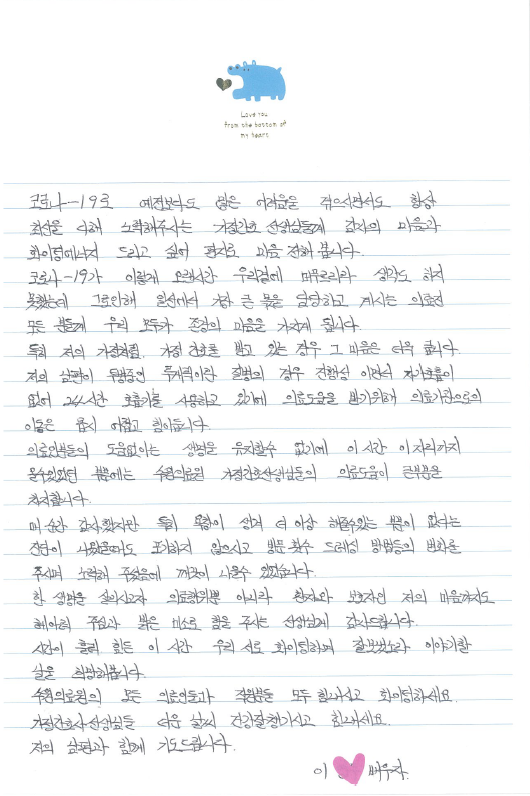 Love you
from the bottom of
my heart
코로나-19로 예전보다도 많은 어려움을 겪으시면서도 항상
최선을 다해 노력해주시는 가정간호 선생님들께 감사의 마음과
화이팅에너지 드리고 싶어 편지로 마음 전해 봅니다.
코로나-19가 이렇게 오랜시간 우리곁에 머무르리라 생각도 하지
못했는데 그로인해 일선에서 가장 큰 몫을 담당하고 계시는 의료진
모든 분들께 우리 모두가 존경의 마음을 가지게 됩니다.
특히 저의 가정처럼. 가정간호를 받고 있는 경우 그 마음은 더욱 큽니다.
저의 남편이 투병중인 루게릭이란 질병의 경우 진행성 이라서 자가호흡이
없어 24시간 호흡기를 사용하고 있기에 의료도움을 받기위해 의료기관으로의
이동은 몹시 어렵고 힘이듭니다.
의료인분들의 도움없이는 생명을 유지할수 없기에 이 시간 이 자리까지
올수있었던 부분에는 수원의료원 가정간호선생님들의 의료도움이 큰부분을
차지합니다.
매 순간 감사했지만 특히 욕창이 생겨 더 이상 해줄수있는 부분이 없다는
진단이 나왔을때도 포기하지 않으시고 방문횟수 드레싱 방법등의 변화를
주시며 노력해 주셨음에 깨끗이 나을수 있었습니다.
한 생명을 살리고자 의료행위뿐 아니라 환자와 보호자인 저의 마음까지도
헤아려 주심과 밝은 미소로 힘을 주시는 선생님께 감사드립니다.
시간이 흘러 힘든 이 시간 우리 서로 화이팅하며 잘보냈노라 이야기할
날을 희망해봅니다.
수원의료원의 모든 의료인들과 직원분들 모두 힘내시고 화이팅하세요.
가정간호사선생님들 더운 날씨 건강잘챙기시고 힘내세요.
저의 남편과 함께 기도드립니다.
이 배우자.